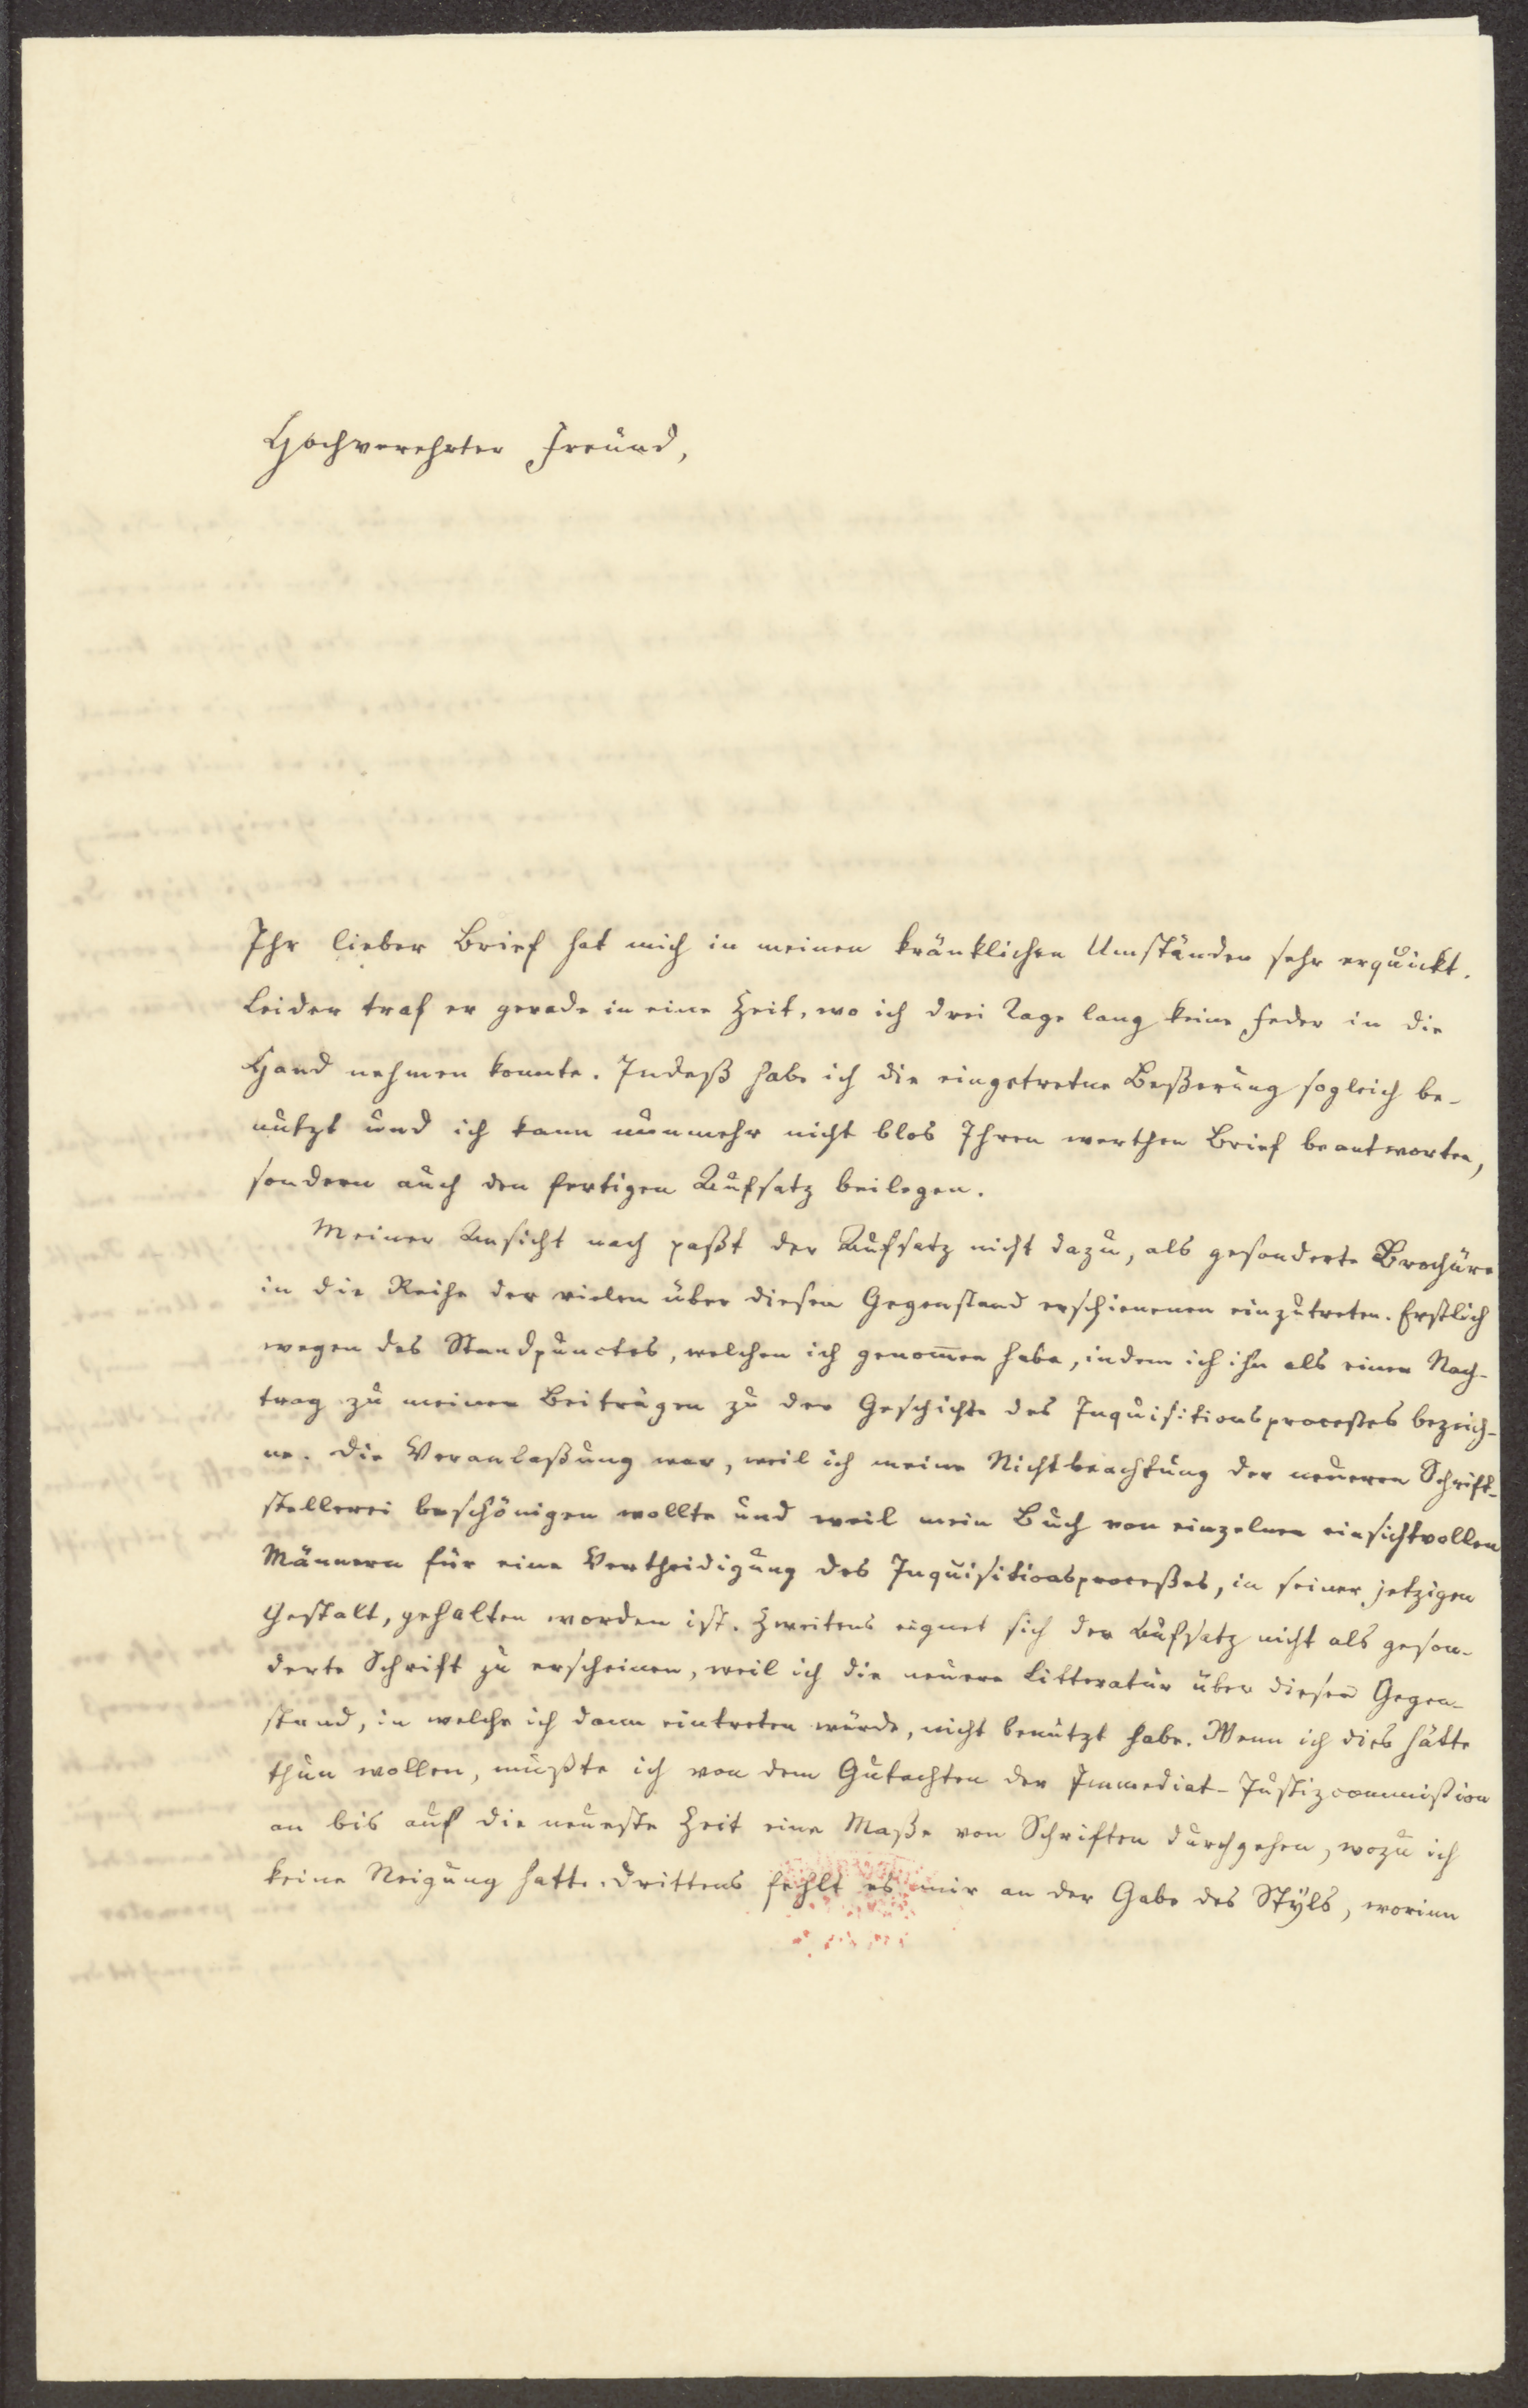 Hochverehrter Freund,
Ihr lieber Brief hat mich in meinen kränklichen Umständen sehr erquickt.
Leider traf er gerade in eine Zeit, wo ich drei Tage lang keine Feder in die
Hand nehmen konnte. Indeß habe ich die eingetretne Beßerung sogleich be-
nutzt und ich kann nunmehr nicht blos Ihren werthen Brief beantworten,
sondern auch den fertigen Aufsatz beilegen.
Meiner Ansicht nach paßt der Aufsatz nicht dazu, als gesonderte Brochüre
in die Reihe der vielen über diesen Gegenstand erschienenen einzutreten. Erstlich
wegen des Standpunctes, welchen ich genom̅en habe, indem ich ihn als einen Nach-
trag zu meinen Beiträgen zu der Geschichte des Inquisitionsprocesses bezeich-
ne. Die Veranlaßung war, weil ich meine Nichtbeachtung der neueren Schrift-
stellerei beschönigen wollte und weil mein Buch von einzelnen einsichtvollen
Männern für eine Vertheidigung des Inquisitionsproceßes, in seiner jetzigen
Gestalt, gehalten worden ist. Zweitens eignet sich der Aufsatz nicht als geson-
derte Schrift zu erscheinen, weil ich die neuere Litteratur über diesen Gegen-
stand, in welche ich dann eintreten würde, nicht benutzt habe. Wenn ich dies hätte
thun wollen, mußte ich von dem Gutachten der Immediat-Justizcommißion
an bis auf die neueste Zeit eine Maße von Schriften durchgehen, wozu ich
keine Neigung hatte. Drittens fehlt es mir an der Gabe des Styls, worinn